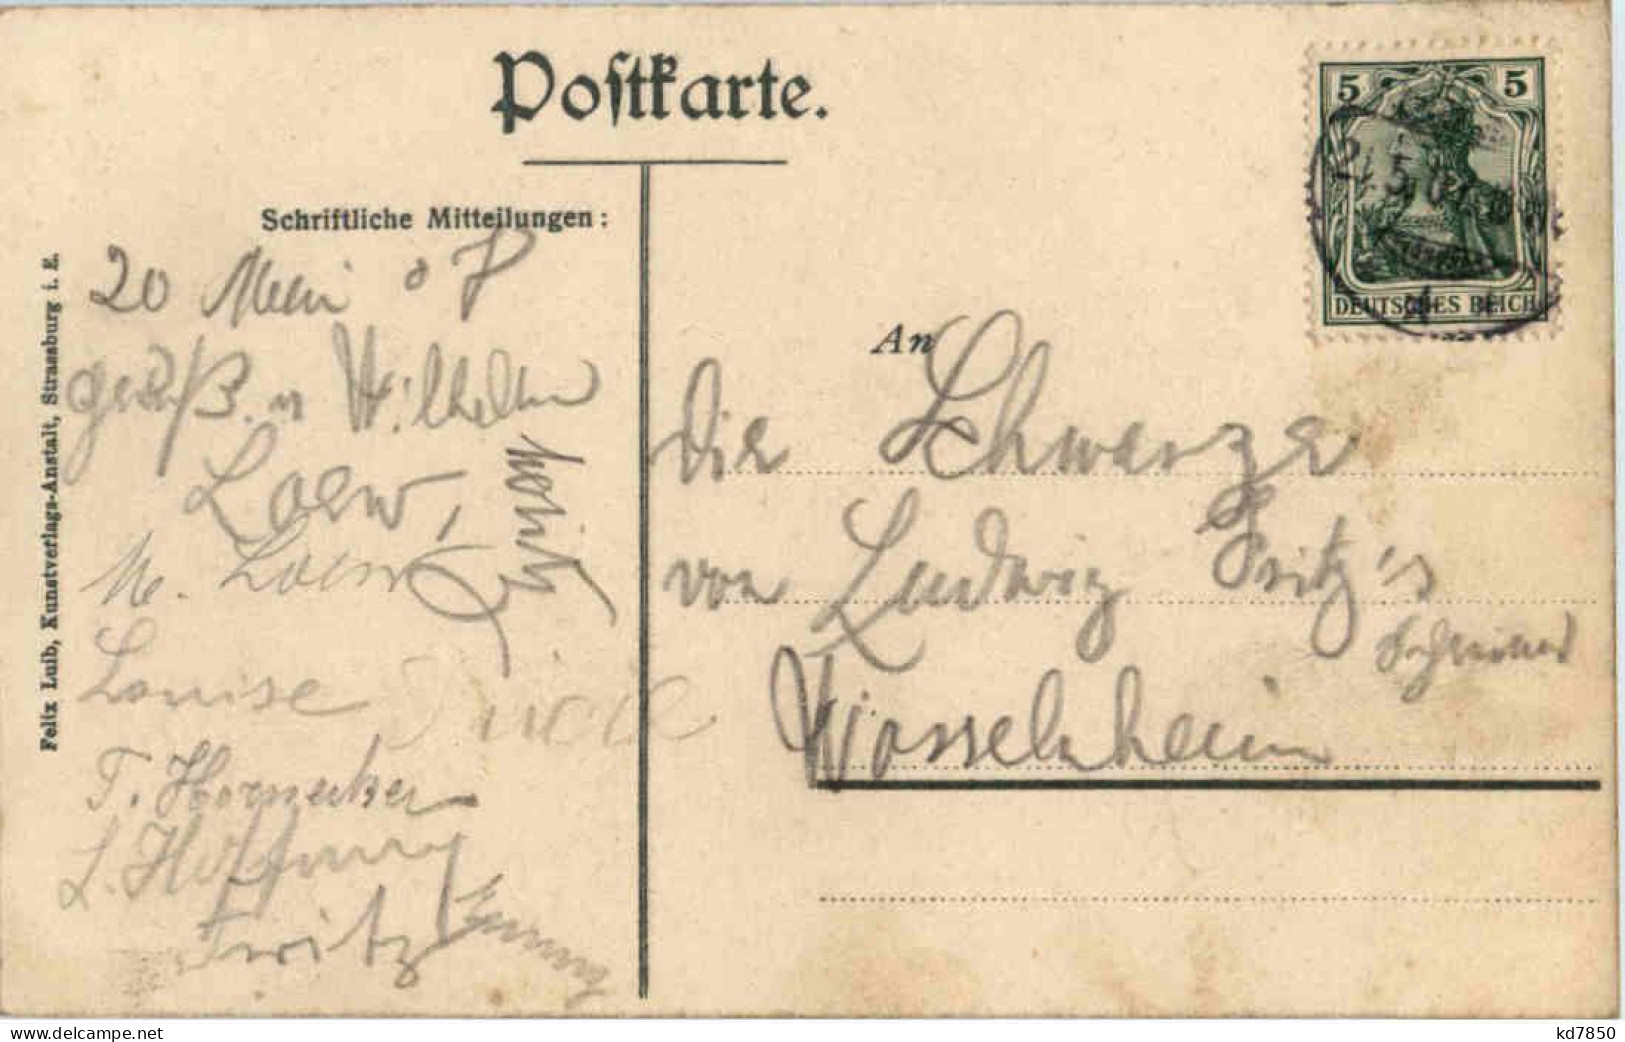 Postkarte.
Schriftliche Mitteilungen:
20 Mai 07
Gruß. v Wilhelm
Loew,
Moritz
M. Loew
Louise
T. Hornecker
L. Hoffmann
Fritz
An
Die Schwarze
von Ludwig Fritz's
Schreiner
Wasselnheim
5 5
DEUTSCHES REICH
Felix Luib, Kunstverlags-Anstalt, Strassburg i. E.
delcampe.net
kd7850